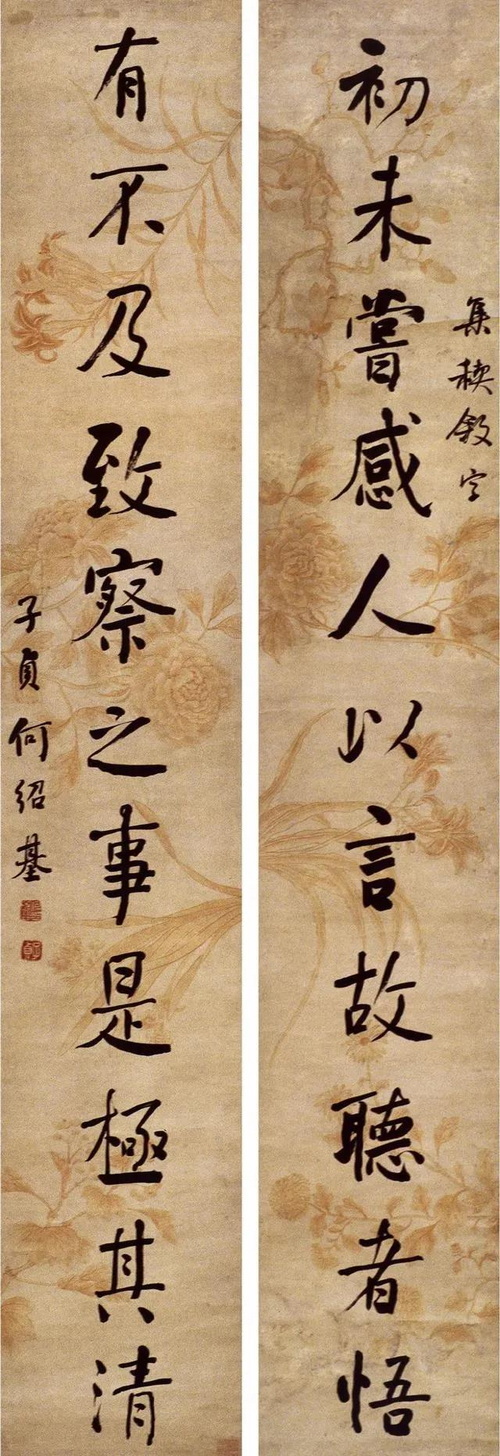 集禊叙字
初未嘗感人以言故聽者悟
有不及致察之事是極其清
子貞何紹基